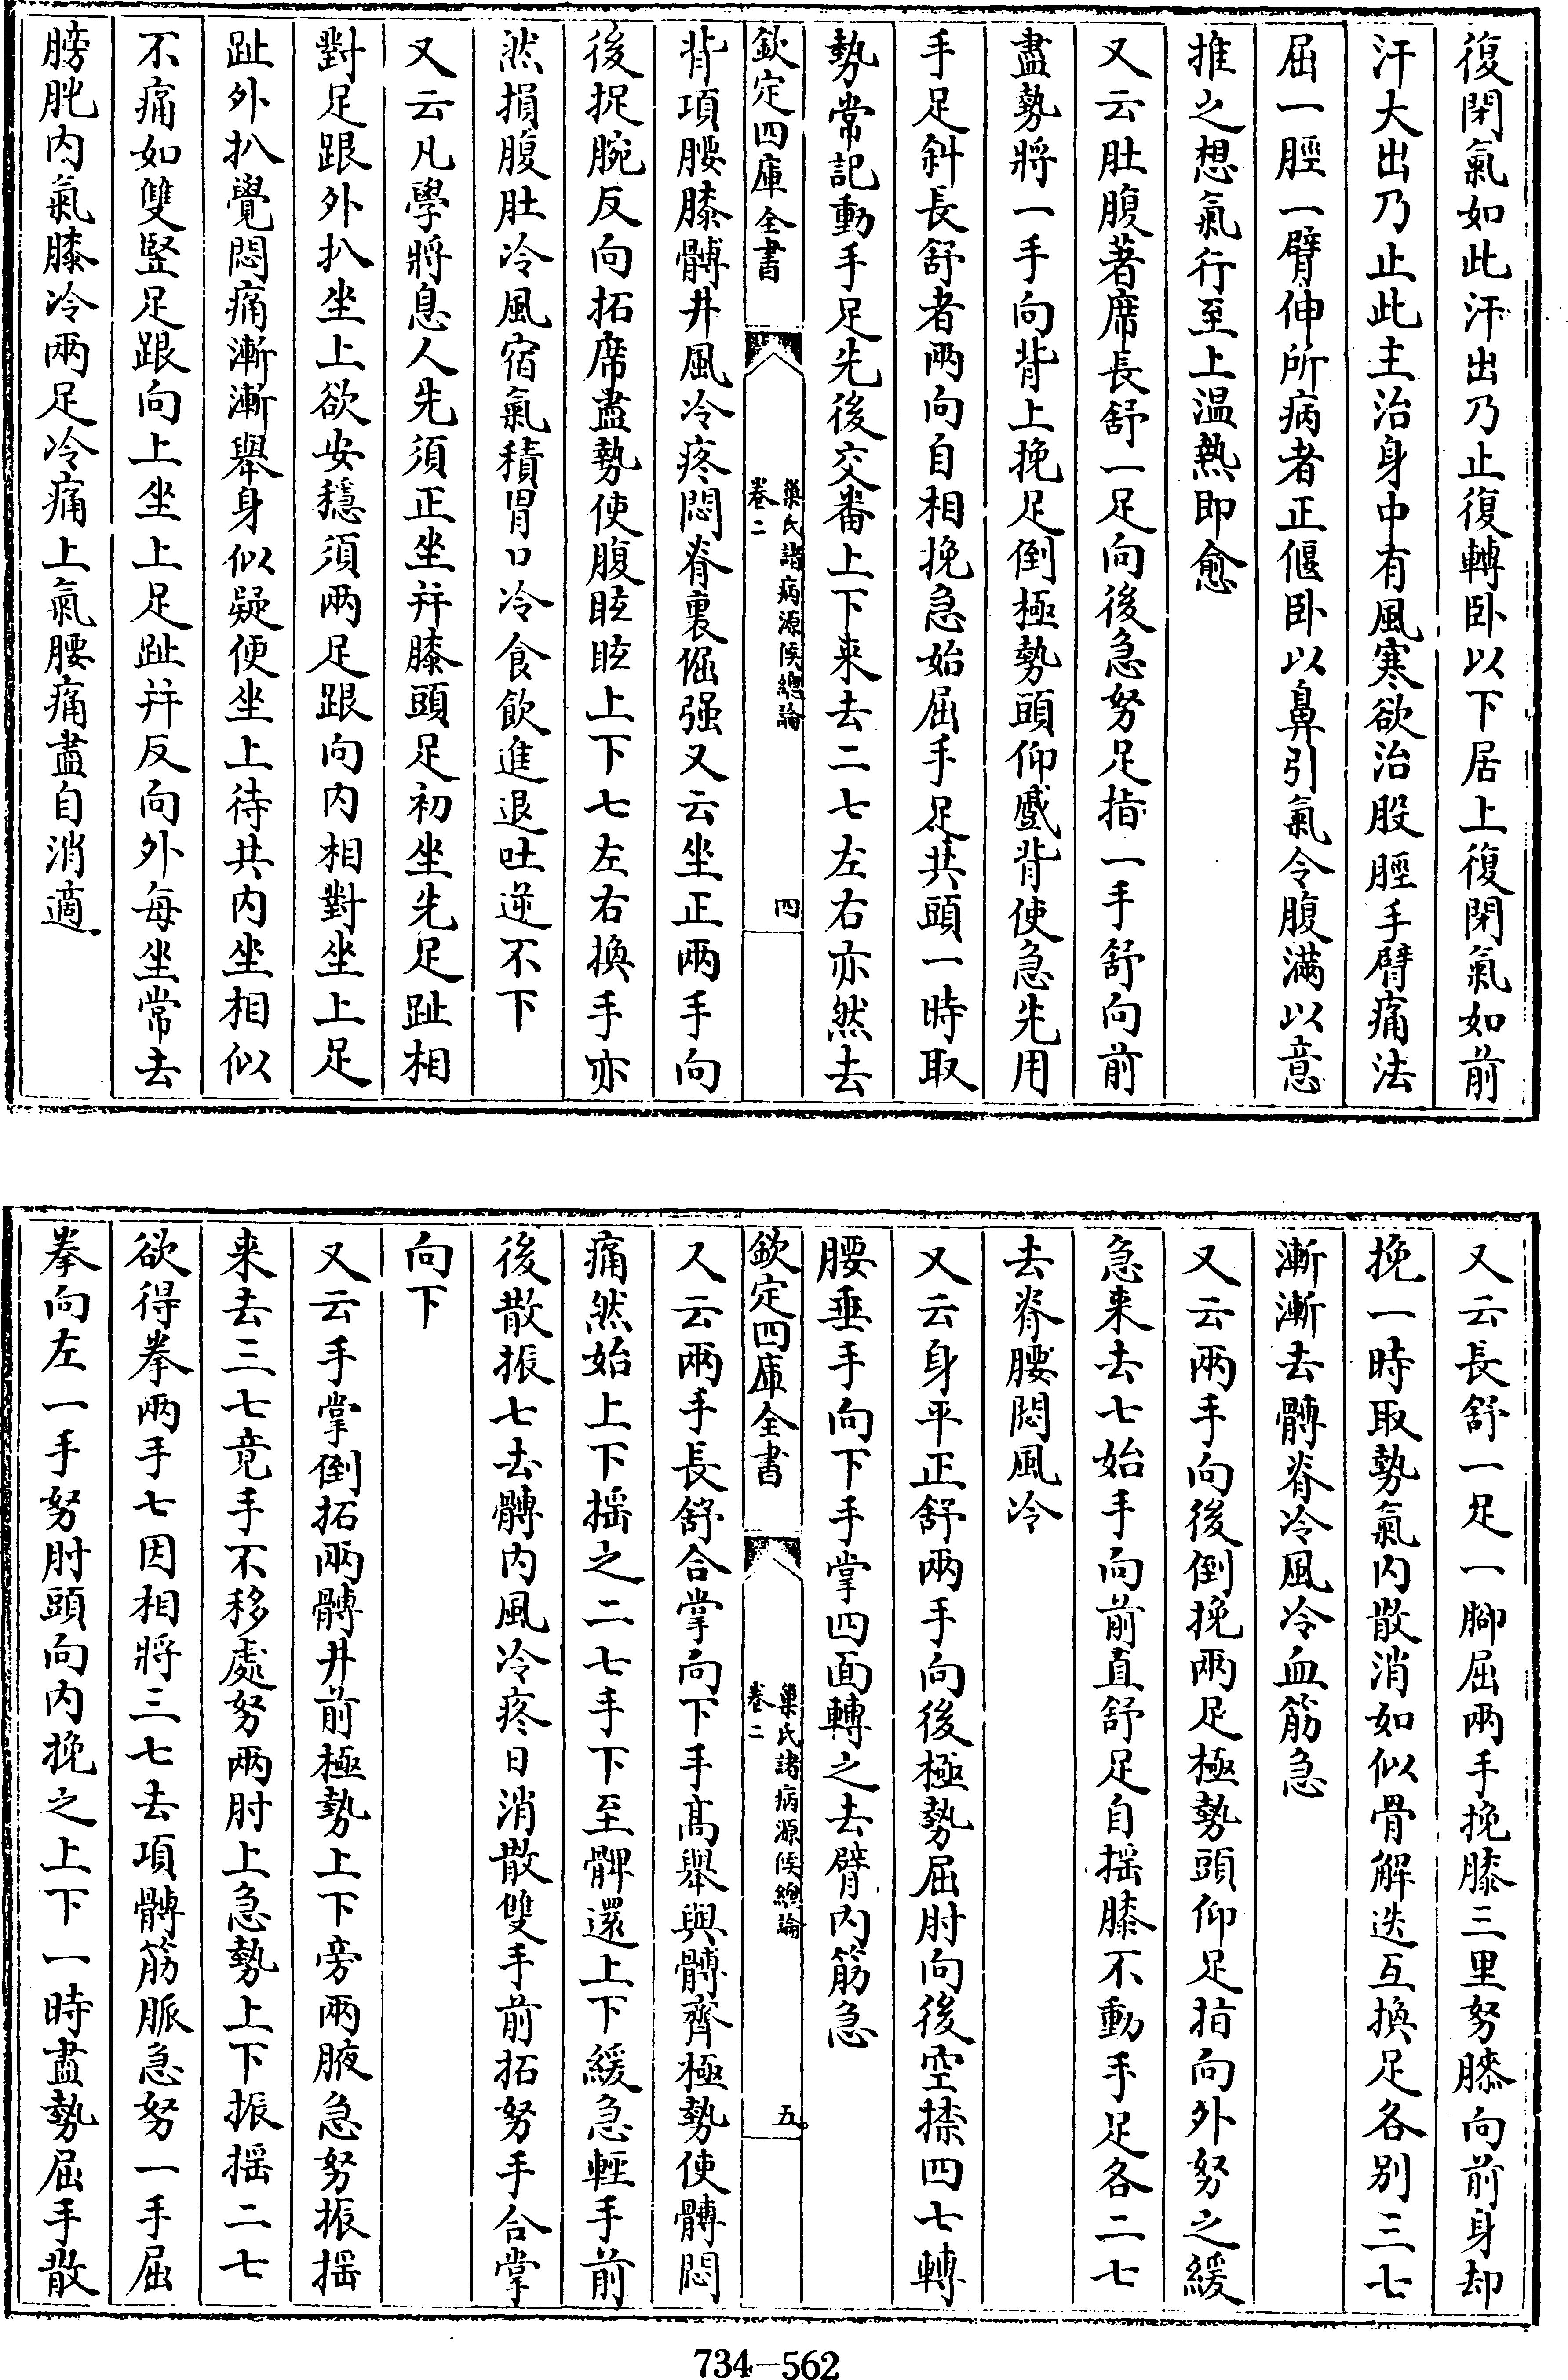 復閉氣如此汗出乃止復轉卧以下居上復閉氣如前
汗大出乃止此主治身中有風寒欲治股脛手臂痛法
屈一脛一臂伸所病者正偃卧以鼻引氣令腹滿以意
推之想氣行至上温熱即愈
又云肚腹著席長舒一足向後急努足指一手舒向前
盡勢將一手向背上挽足倒極勢頭仰蹙背使急先用
手足斜長舒者兩向自相挽急始屈手足共頭一時取
勢常記動手足先後交番上下来去二七左右亦然去
欽定四庫全書
巢氏諸病源候總論
卷二
四
背項腰膝髆井風冷疼悶脊裏倔强又云坐正兩手向
後捉腕反向拓席盡勢使腹眩眩上下七左右換手亦
然損腹肚冷風宿氣積胃口冷食飲進退吐逆不下
又云凡學將息人先須正坐并膝頭足初坐先足趾相
對足跟外扒坐上欲安穩須兩足跟向内相對坐上足
趾外扒覺悶痛漸漸舉身似疑便坐上待共内坐相似
不痛如雙竪足跟向上坐上足趾并反向外每坐常去
膀胱内氣膝冷兩足冷痛上氣腰痛盡自消適
又云長舒一足一脚屈兩手挽膝三里努膝向前身却
挽一時取勢氣内散消如似骨解迭互換足各别三七
漸漸去髆脊冷風冷血筋急
又云兩手向後倒挽兩足極勢頭仰足指向外努之緩
急来去七始手向前直舒足自揺膝不動手足各二七
去脊腰悶風冷
又云身平正舒兩手向後極勢屈肘向後空捺四七轉
腰垂手向下手掌四面轉之去臂内筋急
欽定四庫全書
巢氏諸病源候總論
卷二
五
又云兩手長舒合掌向下手髙舉與髆齊極勢使髆悶
痛然始上下揺之二七手下至髀還上下緩急輕手前
後散振七去髆内風冷疼日消散雙手前拓努手合掌
向下
又云手掌倒拓兩髆井前極勢上下旁兩腋急努振揺
来去三七竟手不移處努兩肘上急勢上下振揺二七
欲得拳兩手七因相將三七去項髆筋脈急努一手屈
拳向左一手努肘頭向内挽之上下一時盡勢屈手散
734—562